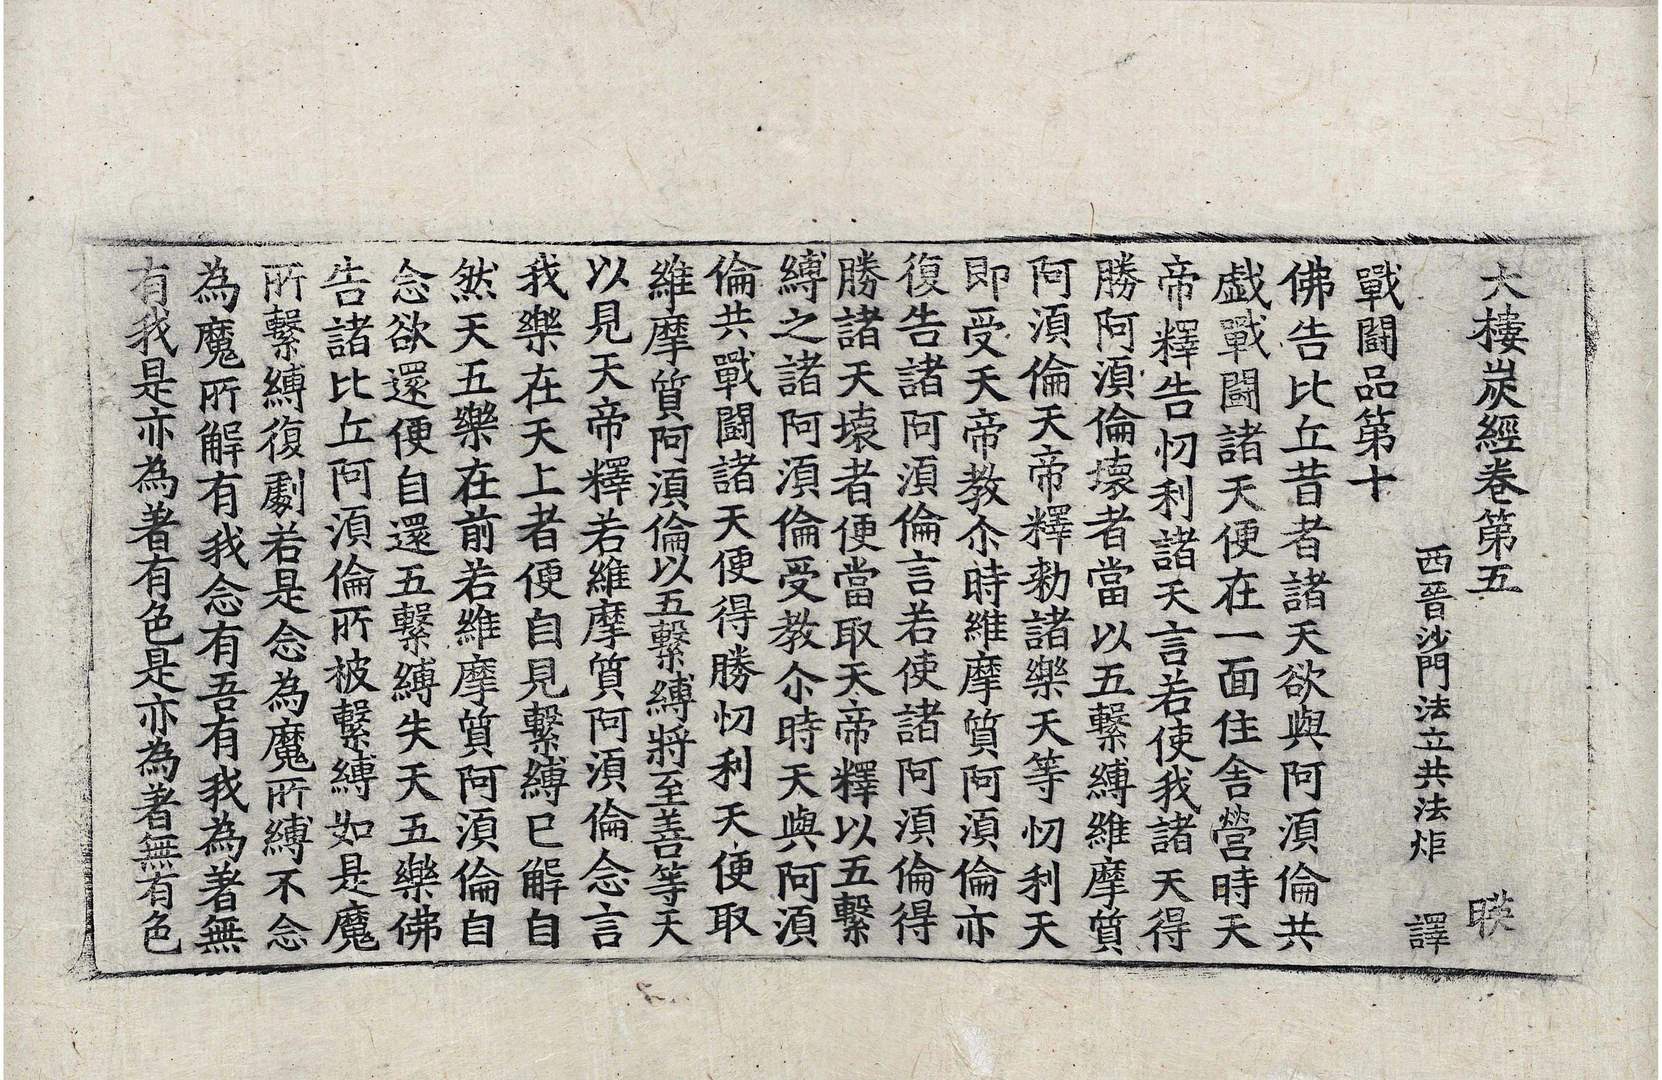 大樓炭經卷第五　暎
西晉沙門法立共法炬　譯
戰鬪品第十
佛告比丘昔者諸天欲與阿須倫共
戱戰鬪諸天便在一面住舍營時天
帝釋告忉利諸天言若使我諸天得
勝阿須倫壞者當以五繫縛維摩質
阿須倫天帝釋勑諸樂天等忉利天
即受天帝教尒時維摩質阿須倫亦
復告諸阿須倫言若使諸阿須倫得
勝諸天壞者便當取天帝釋以五繫
縛之諸阿須倫受教尒時天與阿須
倫共戰鬪諸天便得勝忉利天便取
維摩質阿須倫以五繫縛將至善等天
以見天帝釋若維摩質阿須倫念言
我樂在天上者便自見繫縛已解自
然天五樂在前若維摩質阿須倫自
念欲還便自還五繫縛失天五樂佛
告諸比丘阿須倫所被繫縛如是魔
所繫縛復劇若是念為魔所縛不念
為魔所解有我念有吾有我為著無
有我是亦為著有色是亦為著無有色